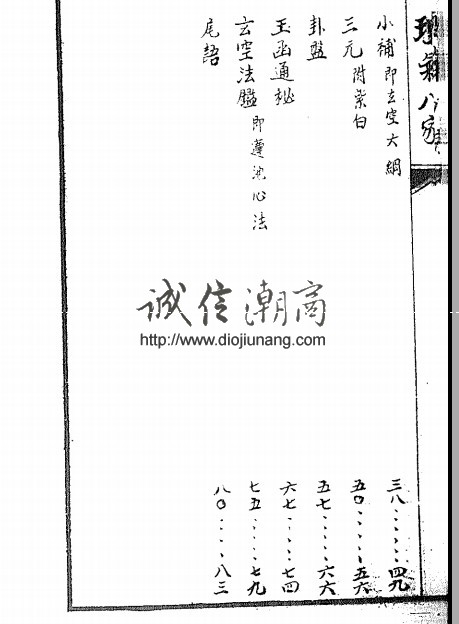 小補 即玄空大綱 三八……四九
三元 附紫白 五〇……五六
卦盤 五七……六六
玉函通秘 六七……七四
玄空法鑑 即蓮池心法 七五……七九
尾語 八〇……八三
诚信潮商
http://www.diojiunang.com